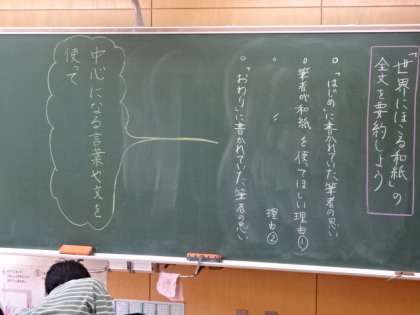 「世界にほこる和紙」の
全文を要約しよう
。「はじめ」に書かれていた筆者の思い
。筆者が和紙を使ってほしい理由①
。 〃 理由②
。「おわり」に書かれていた筆者の思い
中心になる言葉や文を
使って